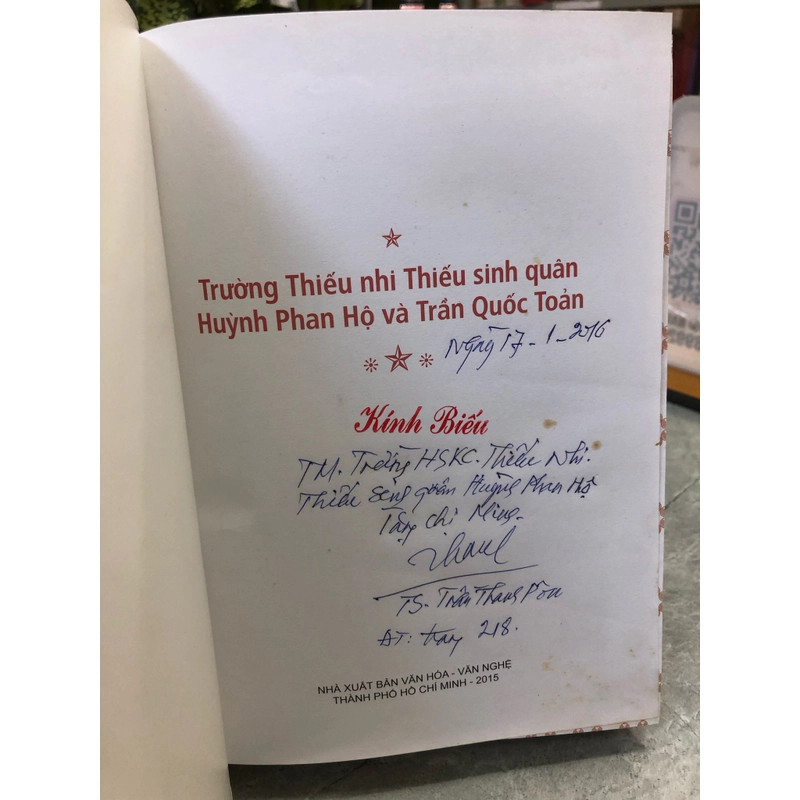 Trường Thiếu nhi Thiếu sinh quân
Huỳnh Phan Hộ và Trần Quốc Toản
Ngày 17-1-2016
Kính Biếu
TM. Trường HSKC. Thiếu Nhi.
Thiếu sinh quân Huỳnh Phan Hộ
Tặng chị
TS. Trần Thanh
ĐT: trang 218.
NHÀ XUẤT BẢN VĂN HÓA - VĂN NGHỆ
THÀNH PHỐ HỒ CHÍ MINH - 2015